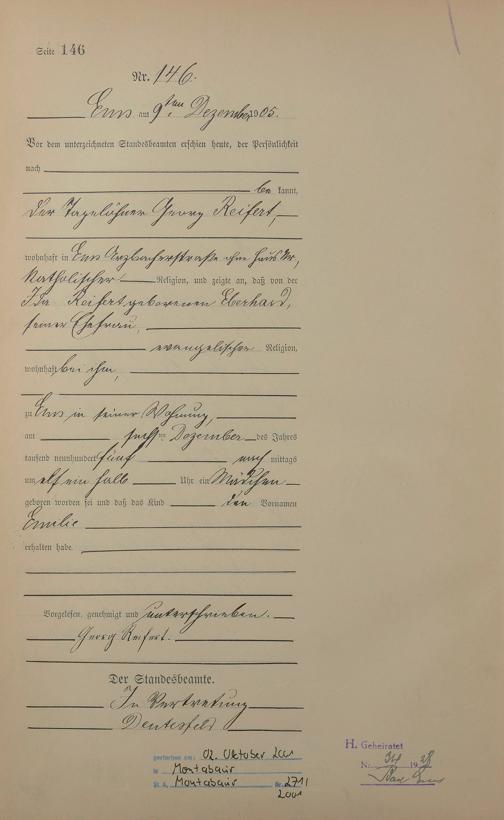 Seite 146
Nr. 146.
Ems am 9ten Dezember 1905.
Vor dem unterzeichneten Standesbeamten erschien heute, der Persönlichkeit
nach
be kannt,
der Tagelöhner Georg Reifert,
wohnhaft in Ems Arzbacherstraße ohne Haus Nr,
katholischer Religion, und zeigte an, daß von der
Ida Reifert geborenen Eberhard,
seiner Ehefrau,
evangelischer Religion,
wohnhaft bei ihm,
zu Ems in seiner Wohnung,
am sechsten Dezember des Jahres
tausend neunhundert fünf nach mittags
um elf ein halb Uhr ein Mädchen
geboren worden sei und daß das Kind den Vornamen
Emilie
erhalten habe.
Vorgelesen, genehmigt und unterschrieben.
Georg Reifert.
Der Standesbeamte.
In Vertretung
gestorben am: 02. Oktober 2001
in Montabaur
St. A. Montabaur Nr. 271/
2001
H. Geheiratet
Nr. 34 1928
Ems